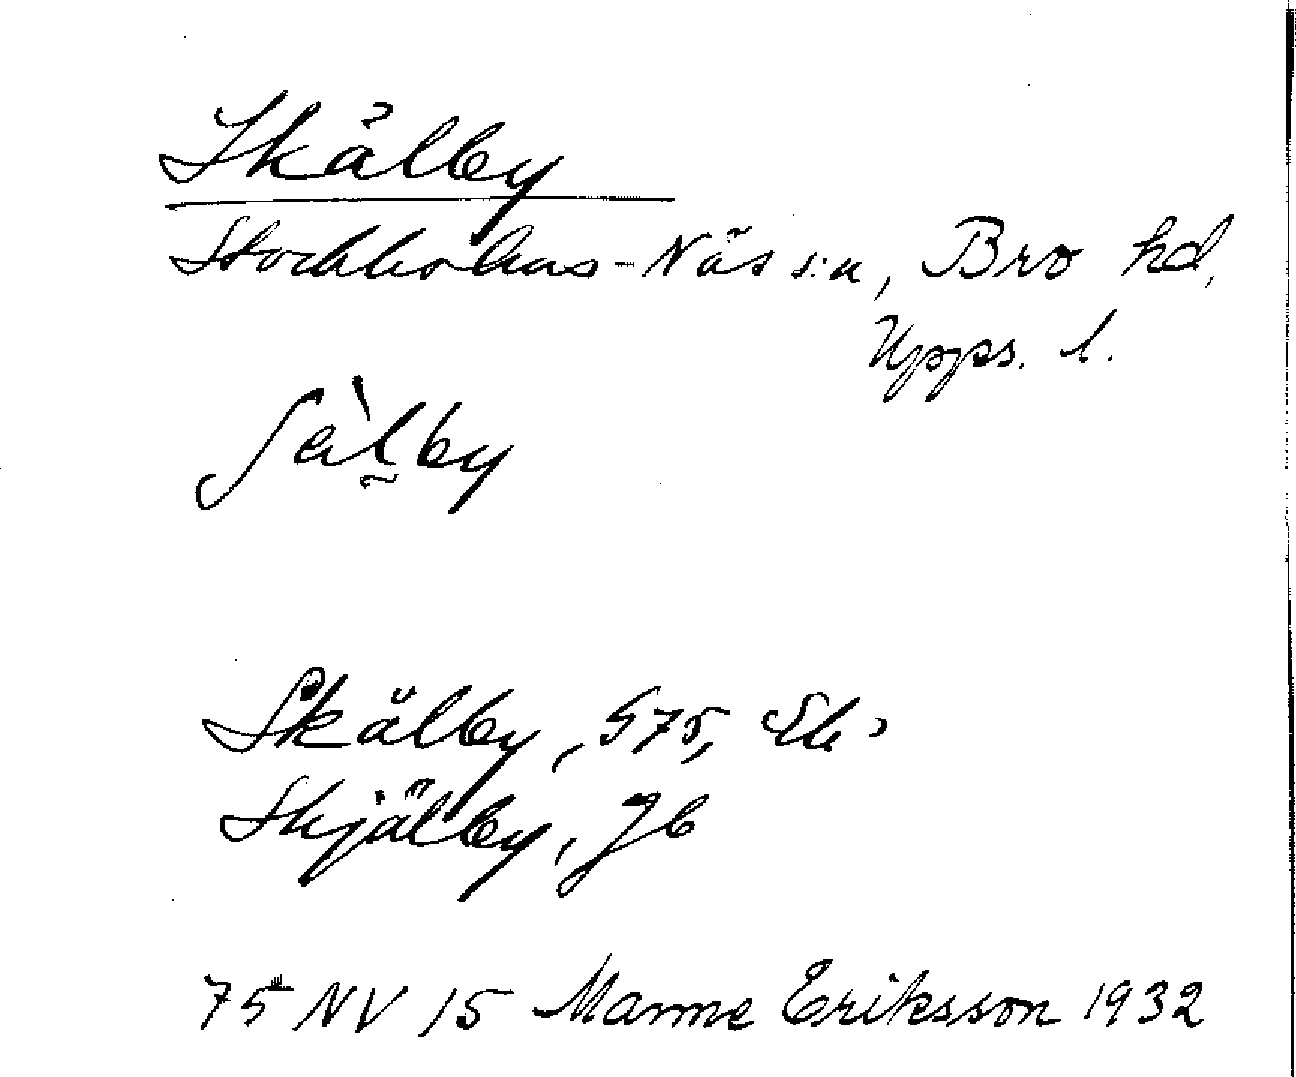 Skälby
Stockholms-Näs sn, Bro hd,
Upps. l.
Skälby, 575, Ek.
Skjälby, Jb
75 NV 15 Manne Eriksson 1932